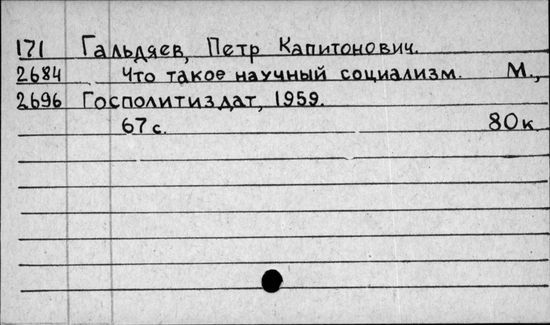 171 Гальдяев, Петр Капитонович.
2684 Что такое научный социализм. М.,
2696 Госполитиздат, 1959.
67 с. 80 к